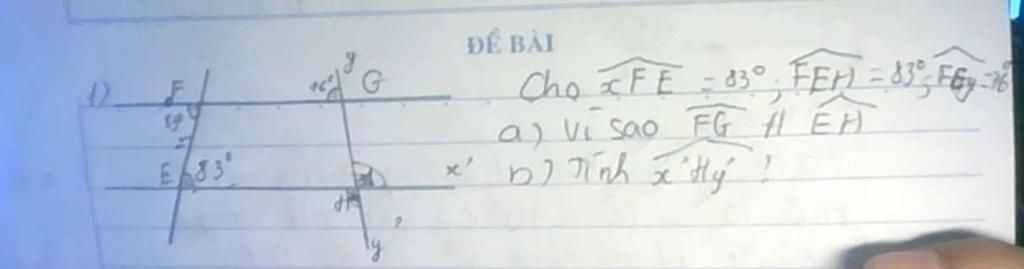 ĐỀ BÀI
1)
F
y
G
76°
E
83°
x'
H
y'
Cho xFE = 83°; FEH = 83°; FGy = 76°
a) Vì sao FG // EH
b) Tính x'Hy' ?